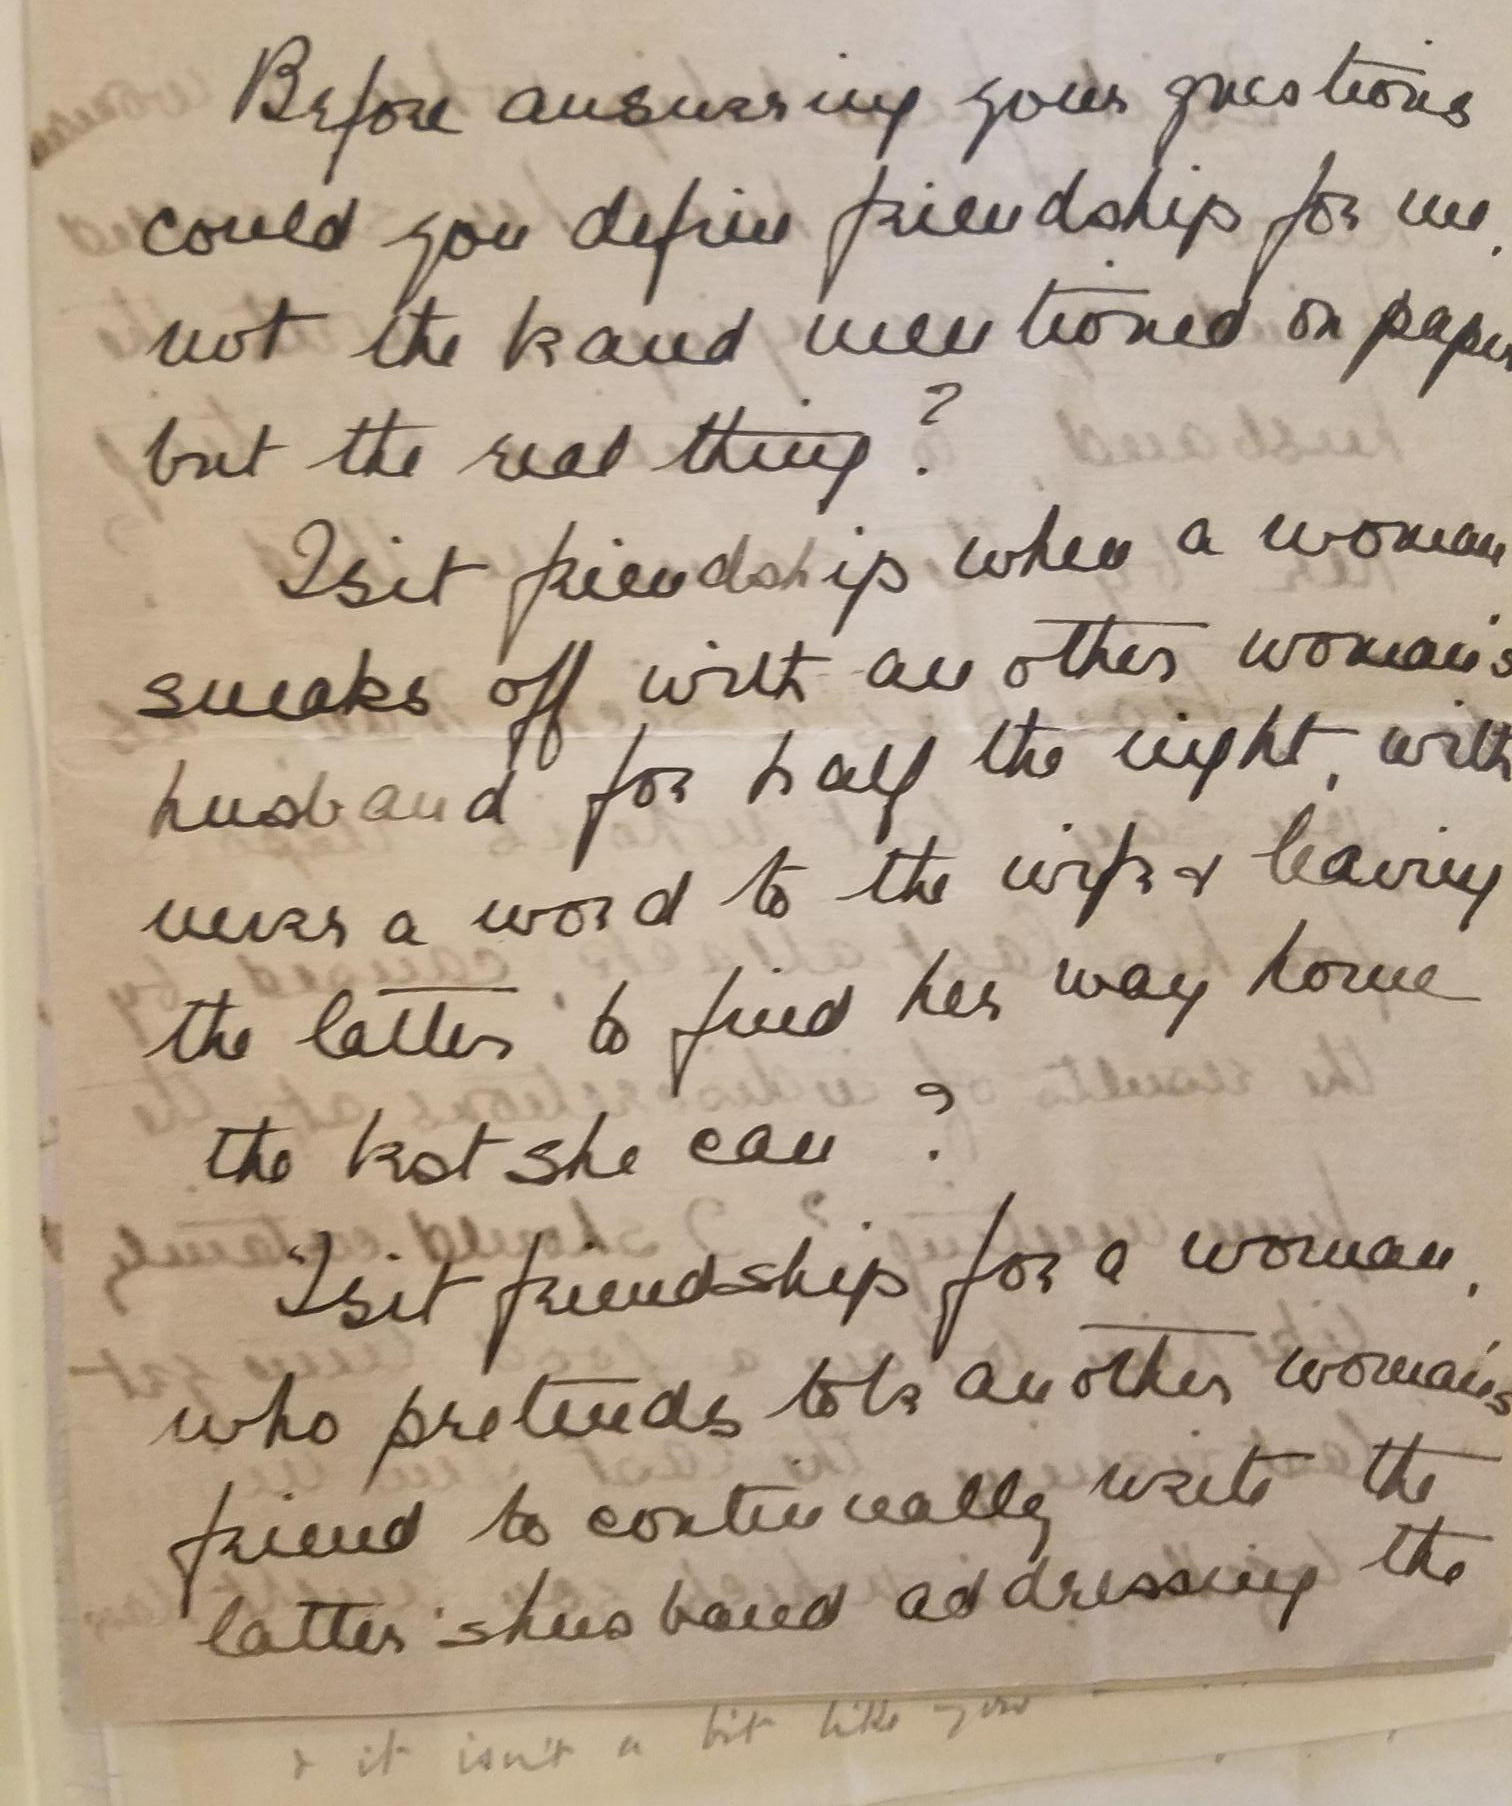 Before answering your questions
could you define friendship for me,
not the kind mentioned on paper
but the real thing?
Isit friendship when a woman
sneaks off with another woman's
husband for half the night, with
never a word to the wife & leaving
the latter to find her way home
the best she can?
Isit friendship for a woman,
who pretends to be another woman's
friend to continually write the
latter's husband addressing the
& it isn't a bit like you